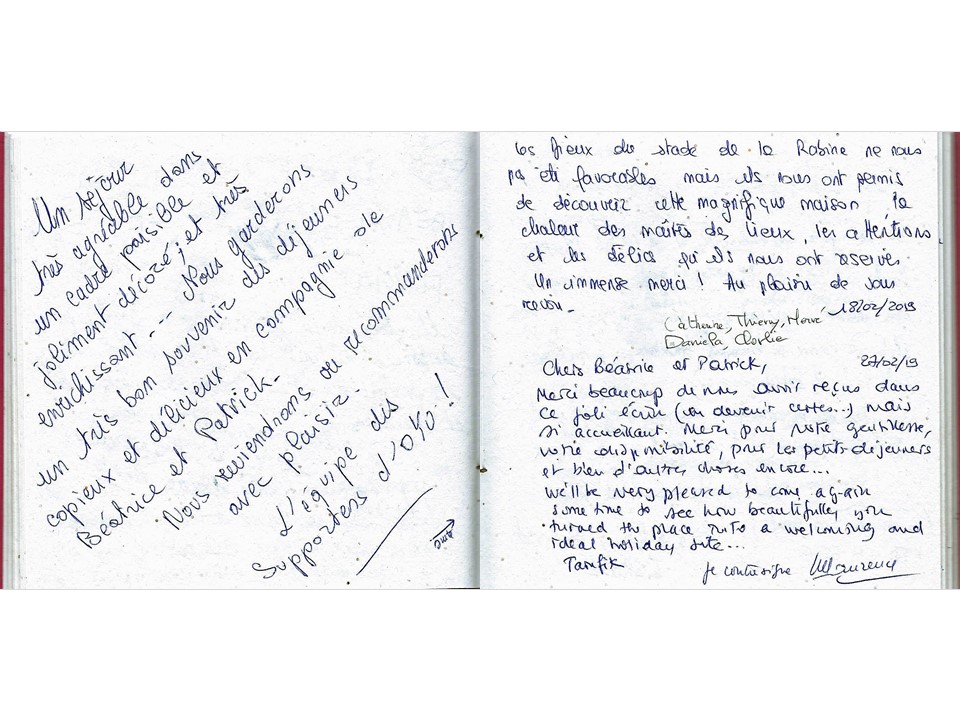 Un séjour
très agréable dans
un cadre paisible et
joliment décoré, et très
enrichissant --- Nous garderons
un très bon souvenir des déjeuners
copieux et délicieux en compagnie de
Béatrice et Patrick.
Nous reviendrons ou recommanderons
avec plaisir.
L'équipe des
supporters d'OYO !
Les lieux du stade de la Robine ne nous
pas été favorables mais ils nous ont permis
de découvrir cette magnifique maison, la
chaleur des maîtres des lieux, les attentions
et les délices qu'ils nous ont réservés
Un immense merci ! Au plaisir de vous
revoir. 18/02/2019
Catherine, Thierry, Hervé
Daniela, Charlie
Chers Béatrice et Patrick, 27/02/19
Merci beaucoup de nous avoir reçus dans
ce joli écrin (en devenir certes...) mais
si accueillant. Merci pour votre gentillesse,
votre disponibilité, pour les petits-déjeuners
et bien d'autres choses encore...
We'll be very pleased to come again
some time to see how beautifully you
turned the place into a welcoming and
ideal holiday site...
Taufik
je contresigne